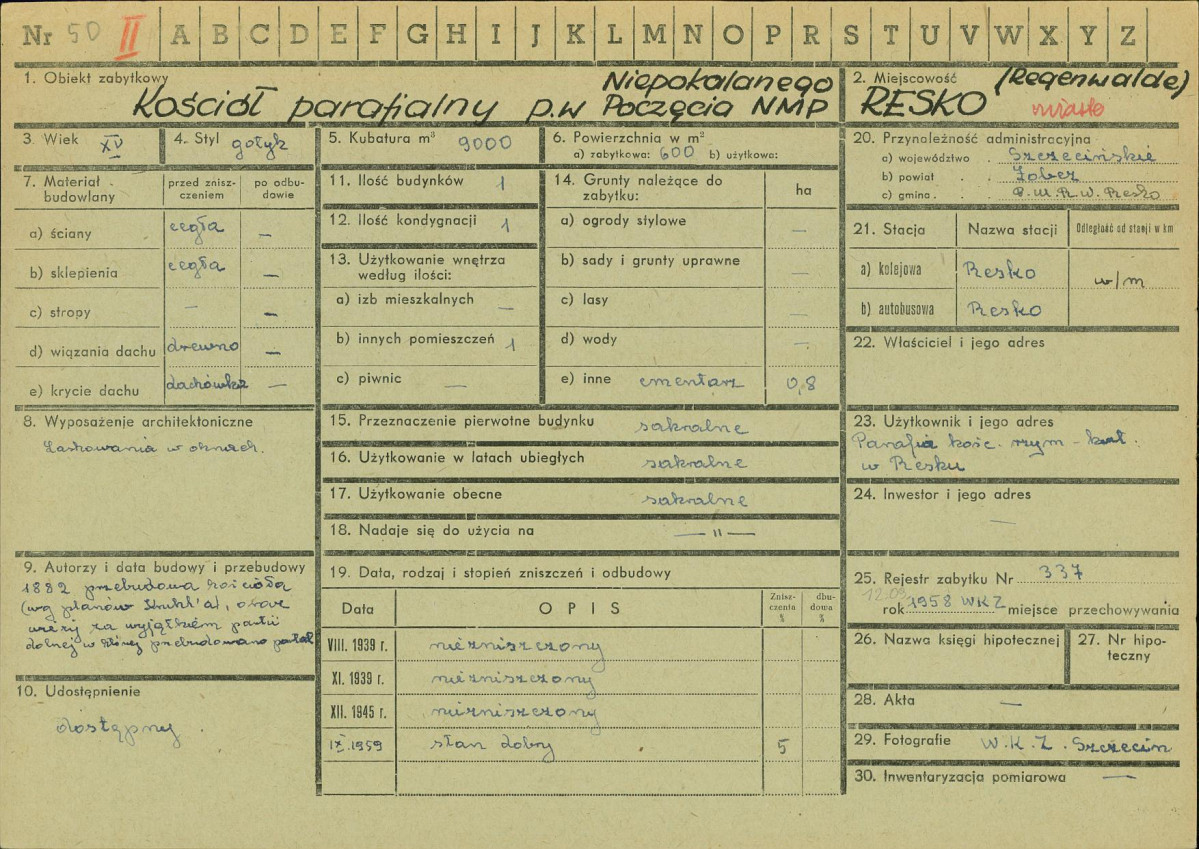 Nr 50 II A B C D E F G H I J K L M N O P R S T U V W X Y Z
1. Obiekt zabytkowy
Kościół parafialny p.w Niepokalanego
Poczęcia NMP
2. Miejscowość (Regenwalde)
RESKO miasto
3. Wiek XV
4. Styl gotyk
5. Kubatura m³ 9000
6. Powierzchnia w m²
a) zabytkowa: 600 b) użytkowa:
7. Materiał budowlany
przed zniszczeniem
po odbudowie
a) ściany cegła —
b) sklepienia cegła —
c) stropy — —
d) wiązania dachu drewno —
e) krycie dachu dachówka —
8. Wyposażenie architektoniczne
Laskowania w oknach.
9. Autorzy i data budowy i przebudowy
1882 przebudowa kościoła
(wg planów), oraz
wieży za wyjątkiem partii
dolnej w której przebudowano portal
10. Udostępnienie
dostępny.
11. Ilość budynków 1
12. Ilość kondygnacji 1
13. Użytkowanie wnętrza
według ilości:
a) izb mieszkalnych —
b) innych pomieszczeń 1
c) piwnic —
14. Grunty należące do
zabytku:
ha
a) ogrody stylowe —
b) sady i grunty uprawne —
c) lasy —
d) wody —
e) inne cmentarz 0,8
15. Przeznaczenie pierwotne budynku sakralne
16. Użytkowanie w latach ubiegłych sakralne
17. Użytkowanie obecne sakralne
18. Nadaje się do użycia na — " —
19. Data, rodzaj i stopień zniszczeń i odbudowy
Data
OPIS
Zniszczenia %
dbudowa %
VIII. 1939 r. niezniszczony
XI. 1939 r. niezniszczony
XII. 1945 r. niezniszczony
IX.1959 stan dobry 5
20. Przynależność administracyjna
a) województwo . Szczecińskie
b) powiat . . Łobez
c) gmina . . P.M.R.W. Resko
21. Stacja
Nazwa stacji
Odległość od stacji w km
a) kolejowa Resko w/m
b) autobusowa Resko
22. Właściciel i jego adres
23. Użytkownik i jego adres
Parafia kośc. rzym - kat.
w Resku
24. Inwestor i jego adres
—
25. Rejestr zabytku Nr 337
12.09
rok 1958 WKZ miejsce przechowywania
26. Nazwa księgi hipotecznej
27. Nr hipoteczny
28. Akta —
29. Fotografie W.K.Z. Szczecin
30. Inwentaryzacja pomiarowa —